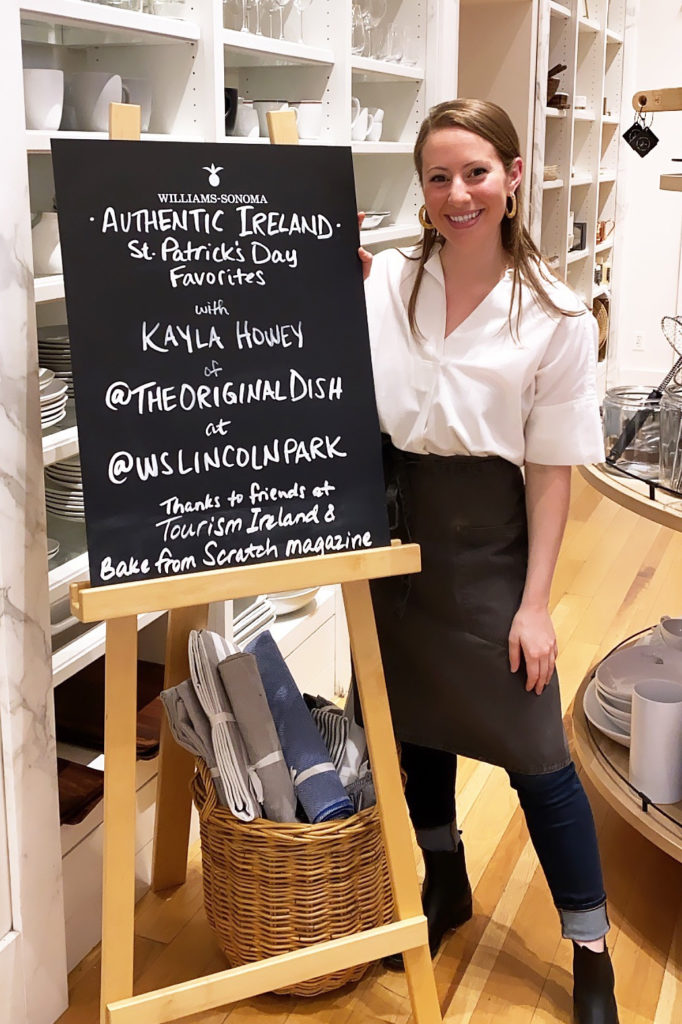 WILLIAMS-SONOMA
· AUTHENTIC IRELAND ·
St. Patrick's Day
Favorites
with
KAYLA HOWEY
of
@THEORIGINALDISH
at
@WSLINCOLNPARK
Thanks to friends at
Tourism Ireland &
Bake from Scratch magazine